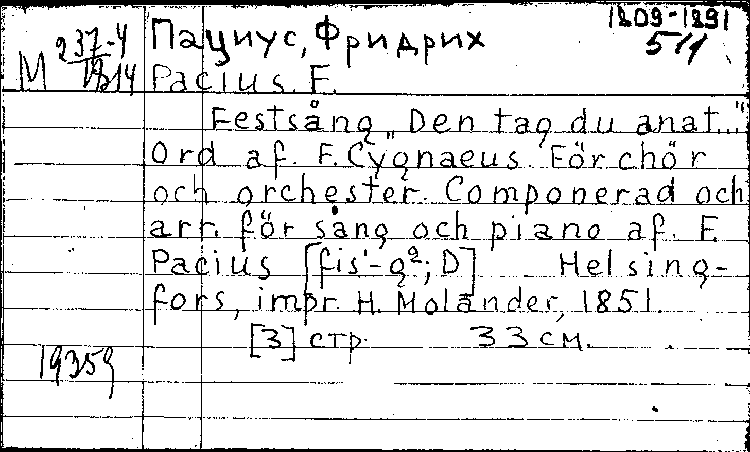 1809-1891
Пациус, Фридрих
511
М 237-4
Pacius. F.
Festsång „Den tag du anat..."
Ord af. F. Cygnaeus. För chör
och orchester. Componerad och
arr. för sång och piano af. F.
Pacius [fis'-g²; D] Helsing-
fors, impr. H. Molander, 1851.
[3] стр. 33 см.
19359